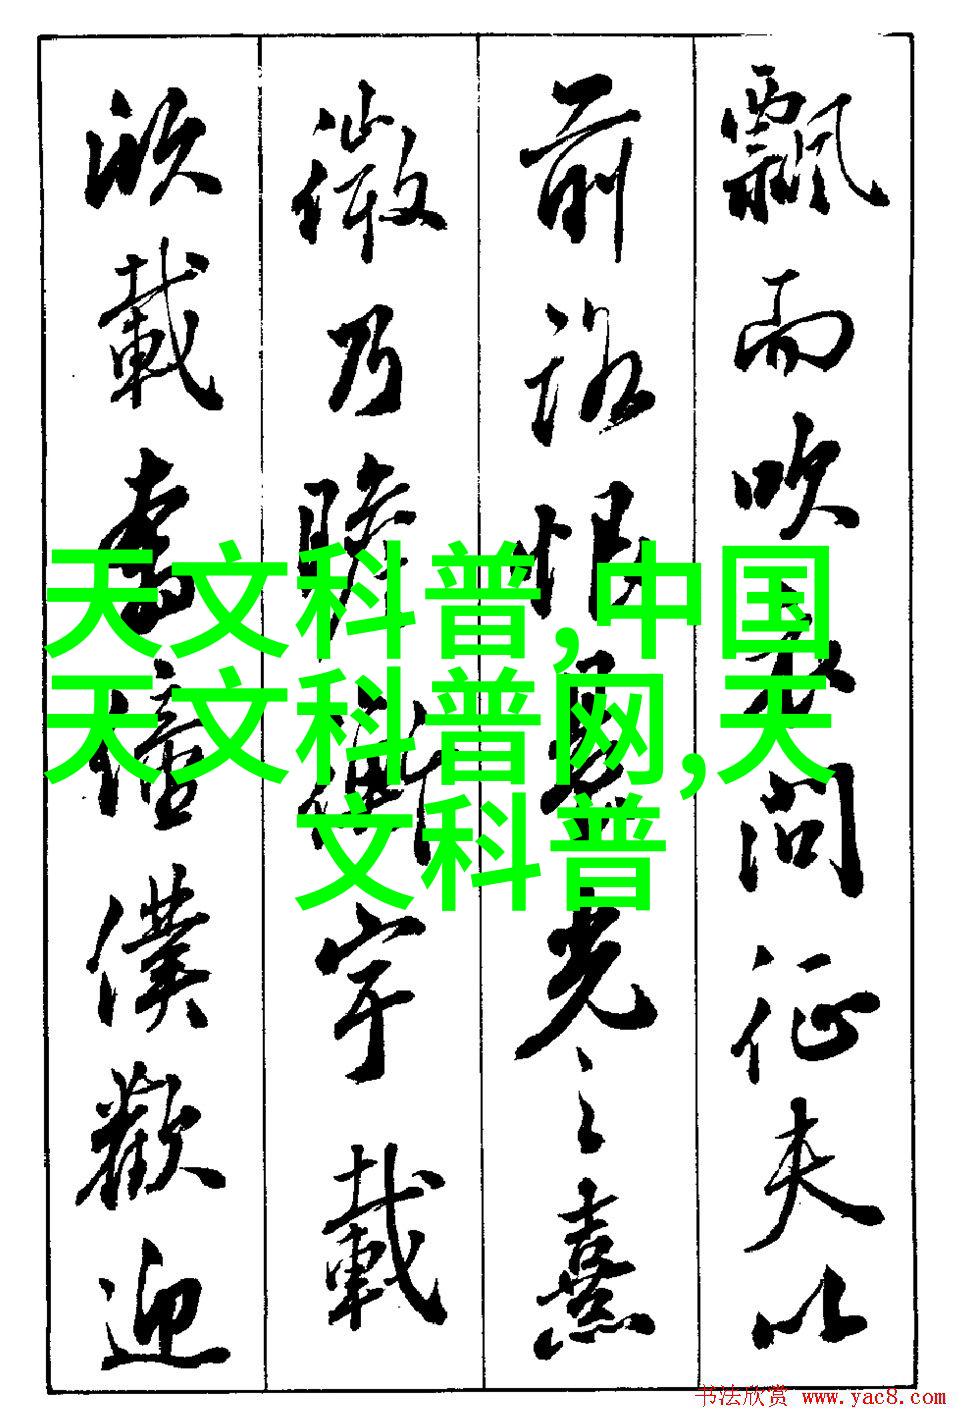 飄而吹衣問征夫以
前路恨晨光之熹
微乃瞻衡宇載
欣載奔僮僕歡迎
天文科普,中国
天文科普网,天
文科普
书法欣赏 www.yac8.com